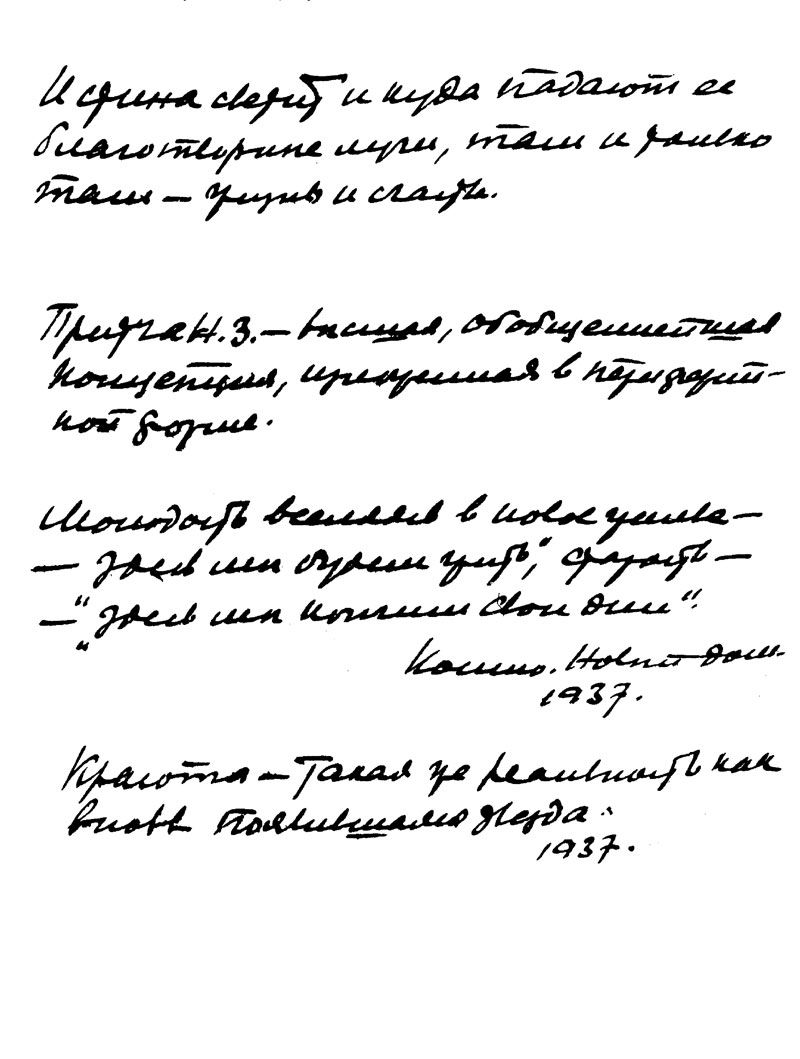 Истина светит и куда падают ее
благотворные лучи, там и только
там — жизнь и счастье.
Притча Н.З. — высшая, обобщеннейшая
концепция, изложенная в
ной форме.
Молодость вселяясь в новое
— здесь мы будем жить", старость —
— "Здесь мы кончим свои дни".
Новый дом.
1937.
Красота — такая же реальность как
вновь появившаяся звезда.
1937.